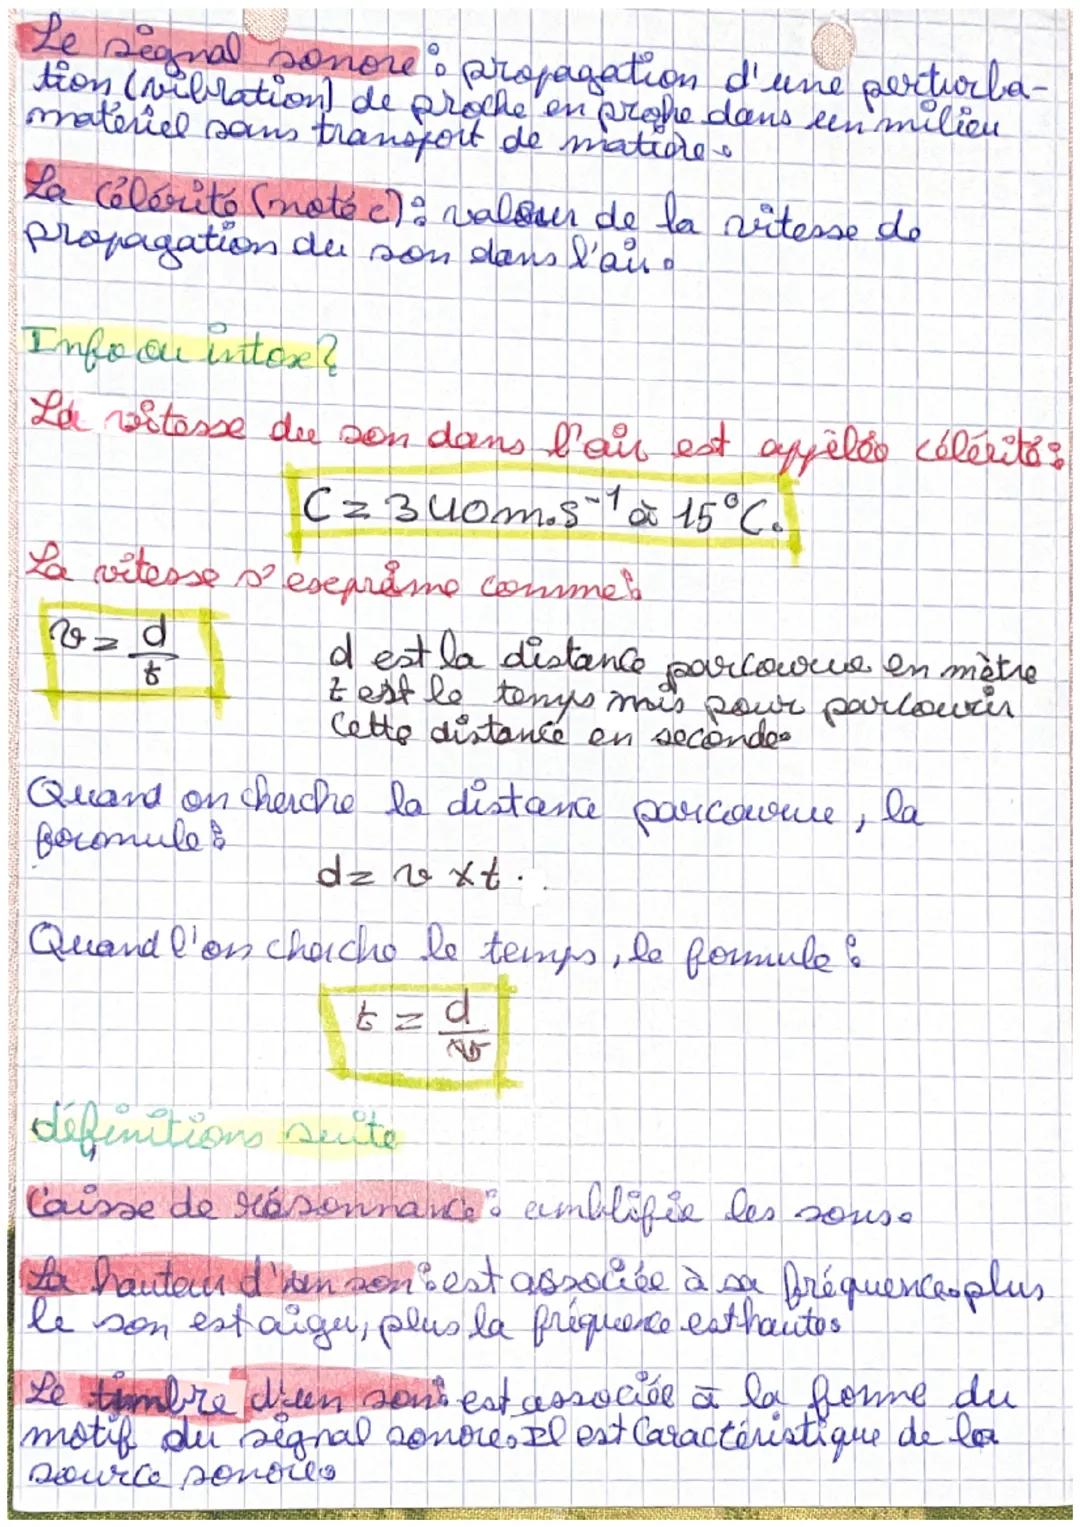 Le signal sonore : propagation d'une perturba-
tion (vibration) de proche en proche dans un milieu
matériel sans transport de matière.
La célérité (noté c) : valeur de la vitesse de
propagation du son dans l'air.
Info ou intox ?
La vitesse du son dans l'air est appelée célérité :
C = 340 m.s⁻¹ à 15°C.
La vitesse s'exprime comme :
v = d/t
d est la distance parcourue en mètre
t est le temps mis pour parcourir
cette distance en seconde.
Quand on cherche la distance parcourue, la
formule :
d = v x t.
Quand l'on cherche le temps, le formule :
t = d/v
définitions suite
Caisse de résonnance : amblifie les sons.
La hauteur d'un son : est associée à sa fréquence. plus
le son est aigu, plus la fréquence est haute.
Le timbre d'un son : est associée à la forme du
motif du signal sonore. Il est Caractéristique de la
source sonore.